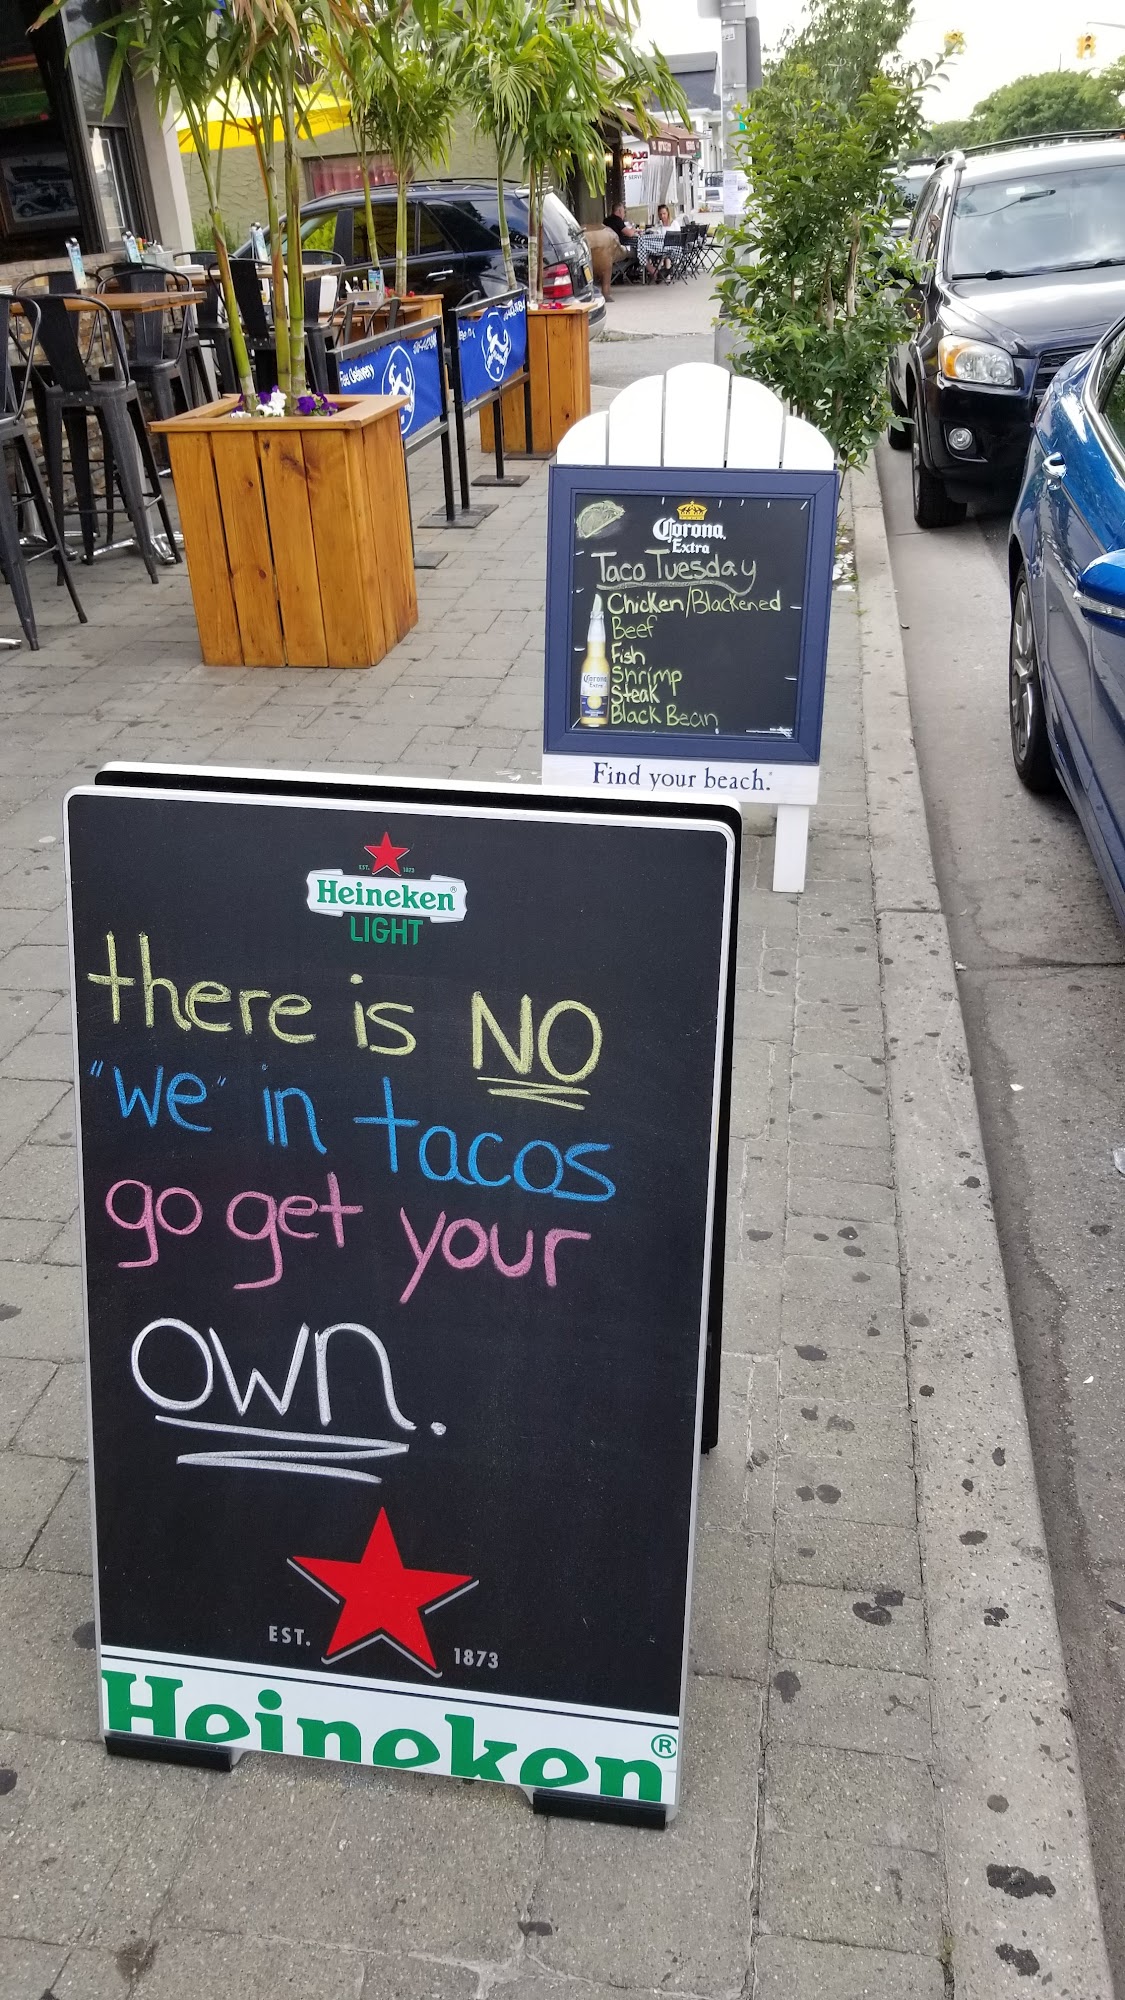 Free Delivery
Corona
Extra
Taco Tuesday
Chicken/Blackened
Beef
Fish
Shrimp
Steak
Black Bean
Corona
Extra
Find your beach.
EST. 1873
Heineken®
LIGHT
there is NO
"we" in tacos
go get your
own.
EST. 1873
Heineken®